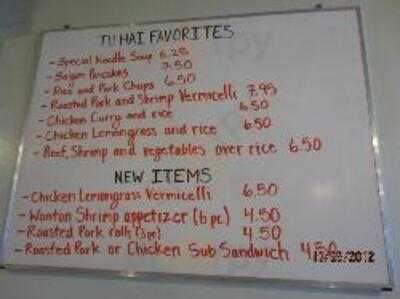 TU HAI FAVORITES
- Special Noodle Soup 6.25
- Saigon Pancakes 7.50
- Rice and Pork Chops 6.50
- Roasted Pork and Shrimp Vermicelli 7.95
- Chicken Curry and rice 6.50
- Chicken Lemongrass and rice 6.50
- Beef, Shrimp and vegetables over rice 6.50
NEW ITEMS
- Chicken Lemongrass Vermicelli 6.50
- Wonton Shrimp appetizer (6 pc) 4.50
- Roasted Pork rolls (3pc) 4.50
- Roasted Pork or Chicken Sub Sandwich 4.50
2012